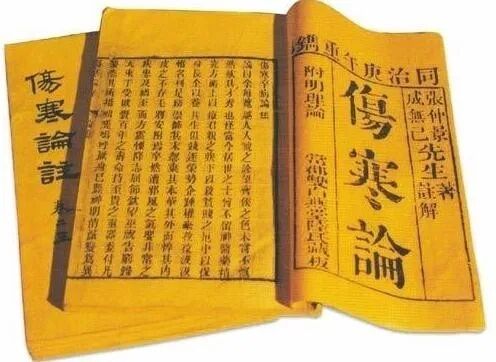 同治庚午重鐫
張仲景先生著
成無己註解
傷寒論
附明理論
常郡雙白燕堂陸氏藏板
傷寒卒病論集
論曰余每覽越人入虢之診望齊侯之色未嘗不慨
然歎其才秀也怪當今居世之士曾不留神醫藥精
究方術上以療君親之疾下以救貧賤之厄中以保
身長全以養其生但競榮勢企踵權豪孜孜汲汲
惟名利是務崇飾其末忽棄其本華其外而悴其內
皮之不存毛將安附焉卒然遭邪風之氣嬰非常之
疾患及禍至而方震慄降志屈節欽望巫祝告窮歸
天束手受敗賫百年之壽命持至貴之重器委付凡
醫恣其所措咄嗟嗚呼厥身已斃神明消滅變為異
傷寒論註